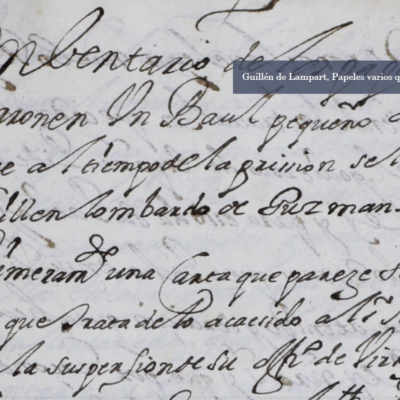 Inbentario de los pap
Guillén de Lampart, Papeles varios q
aronen Un Baul pequeño
e al tiempo de la prision se le
illen lombardo de Guzman
imeramte una Carta que pareze
que trata de lo acaesido al
la suspension de su offio de Vir